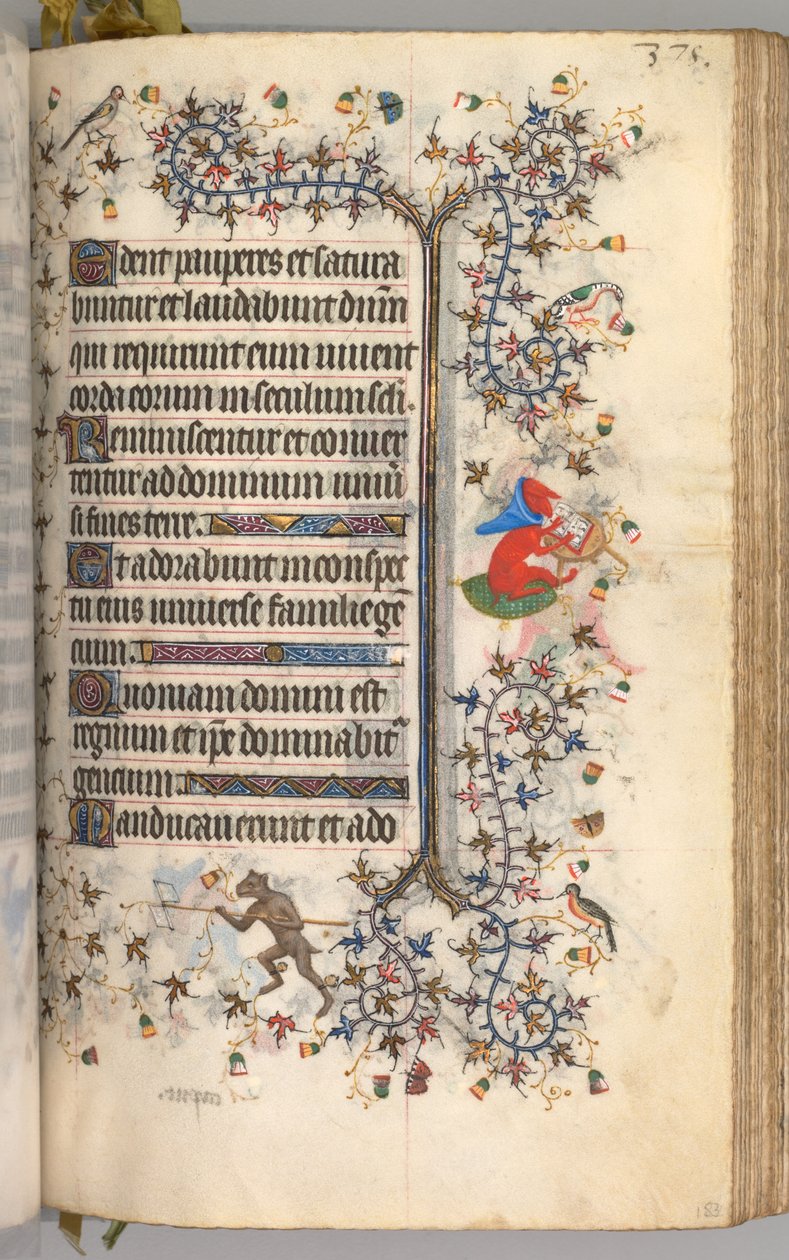 375.
Edent pauperes et satura
buntur et laudabunt dn̄m
qui requirunt eum uiuent
corda eorum in seculum scl̄i.
Reminiscentur et conuer
tentur ad dominum uniu̅
si fines terre.
Et adorabunt in conspec
tu eius uniuerse familie ge̅
cium.
Quoniam domini est
regnum et ip̅e dominabit᷑
gencium.
Manducauerunt et ado
183